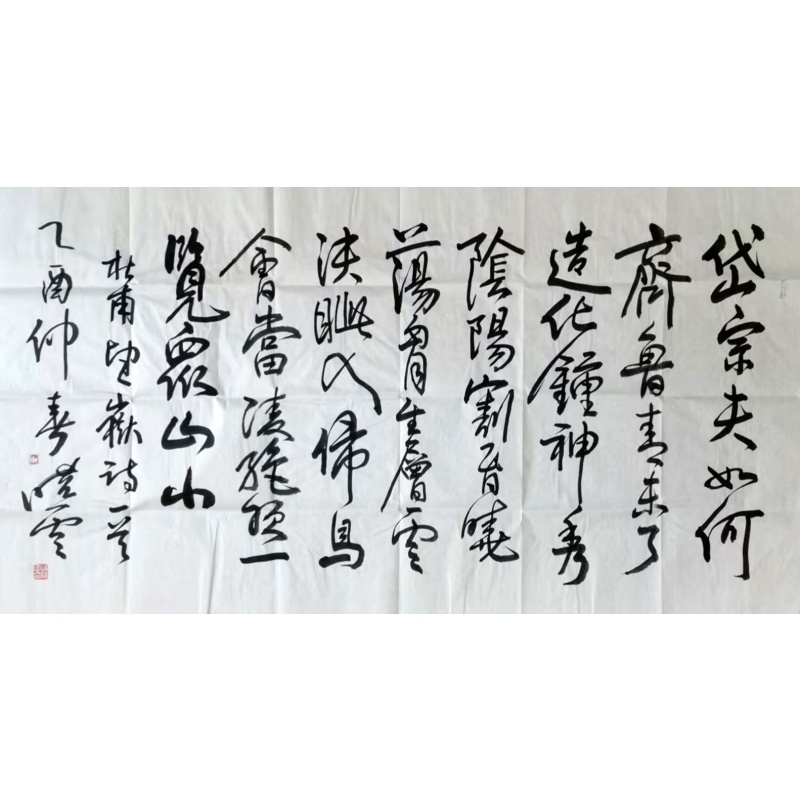 岱宗夫如何
齊魯青未了
造化鍾神秀
陰陽割昏曉
蕩胸生層雲
決眦入歸鳥
會當凌絶頂一
覽眾山小
杜甫望嶽詩一首
乙酉仲春曉雲